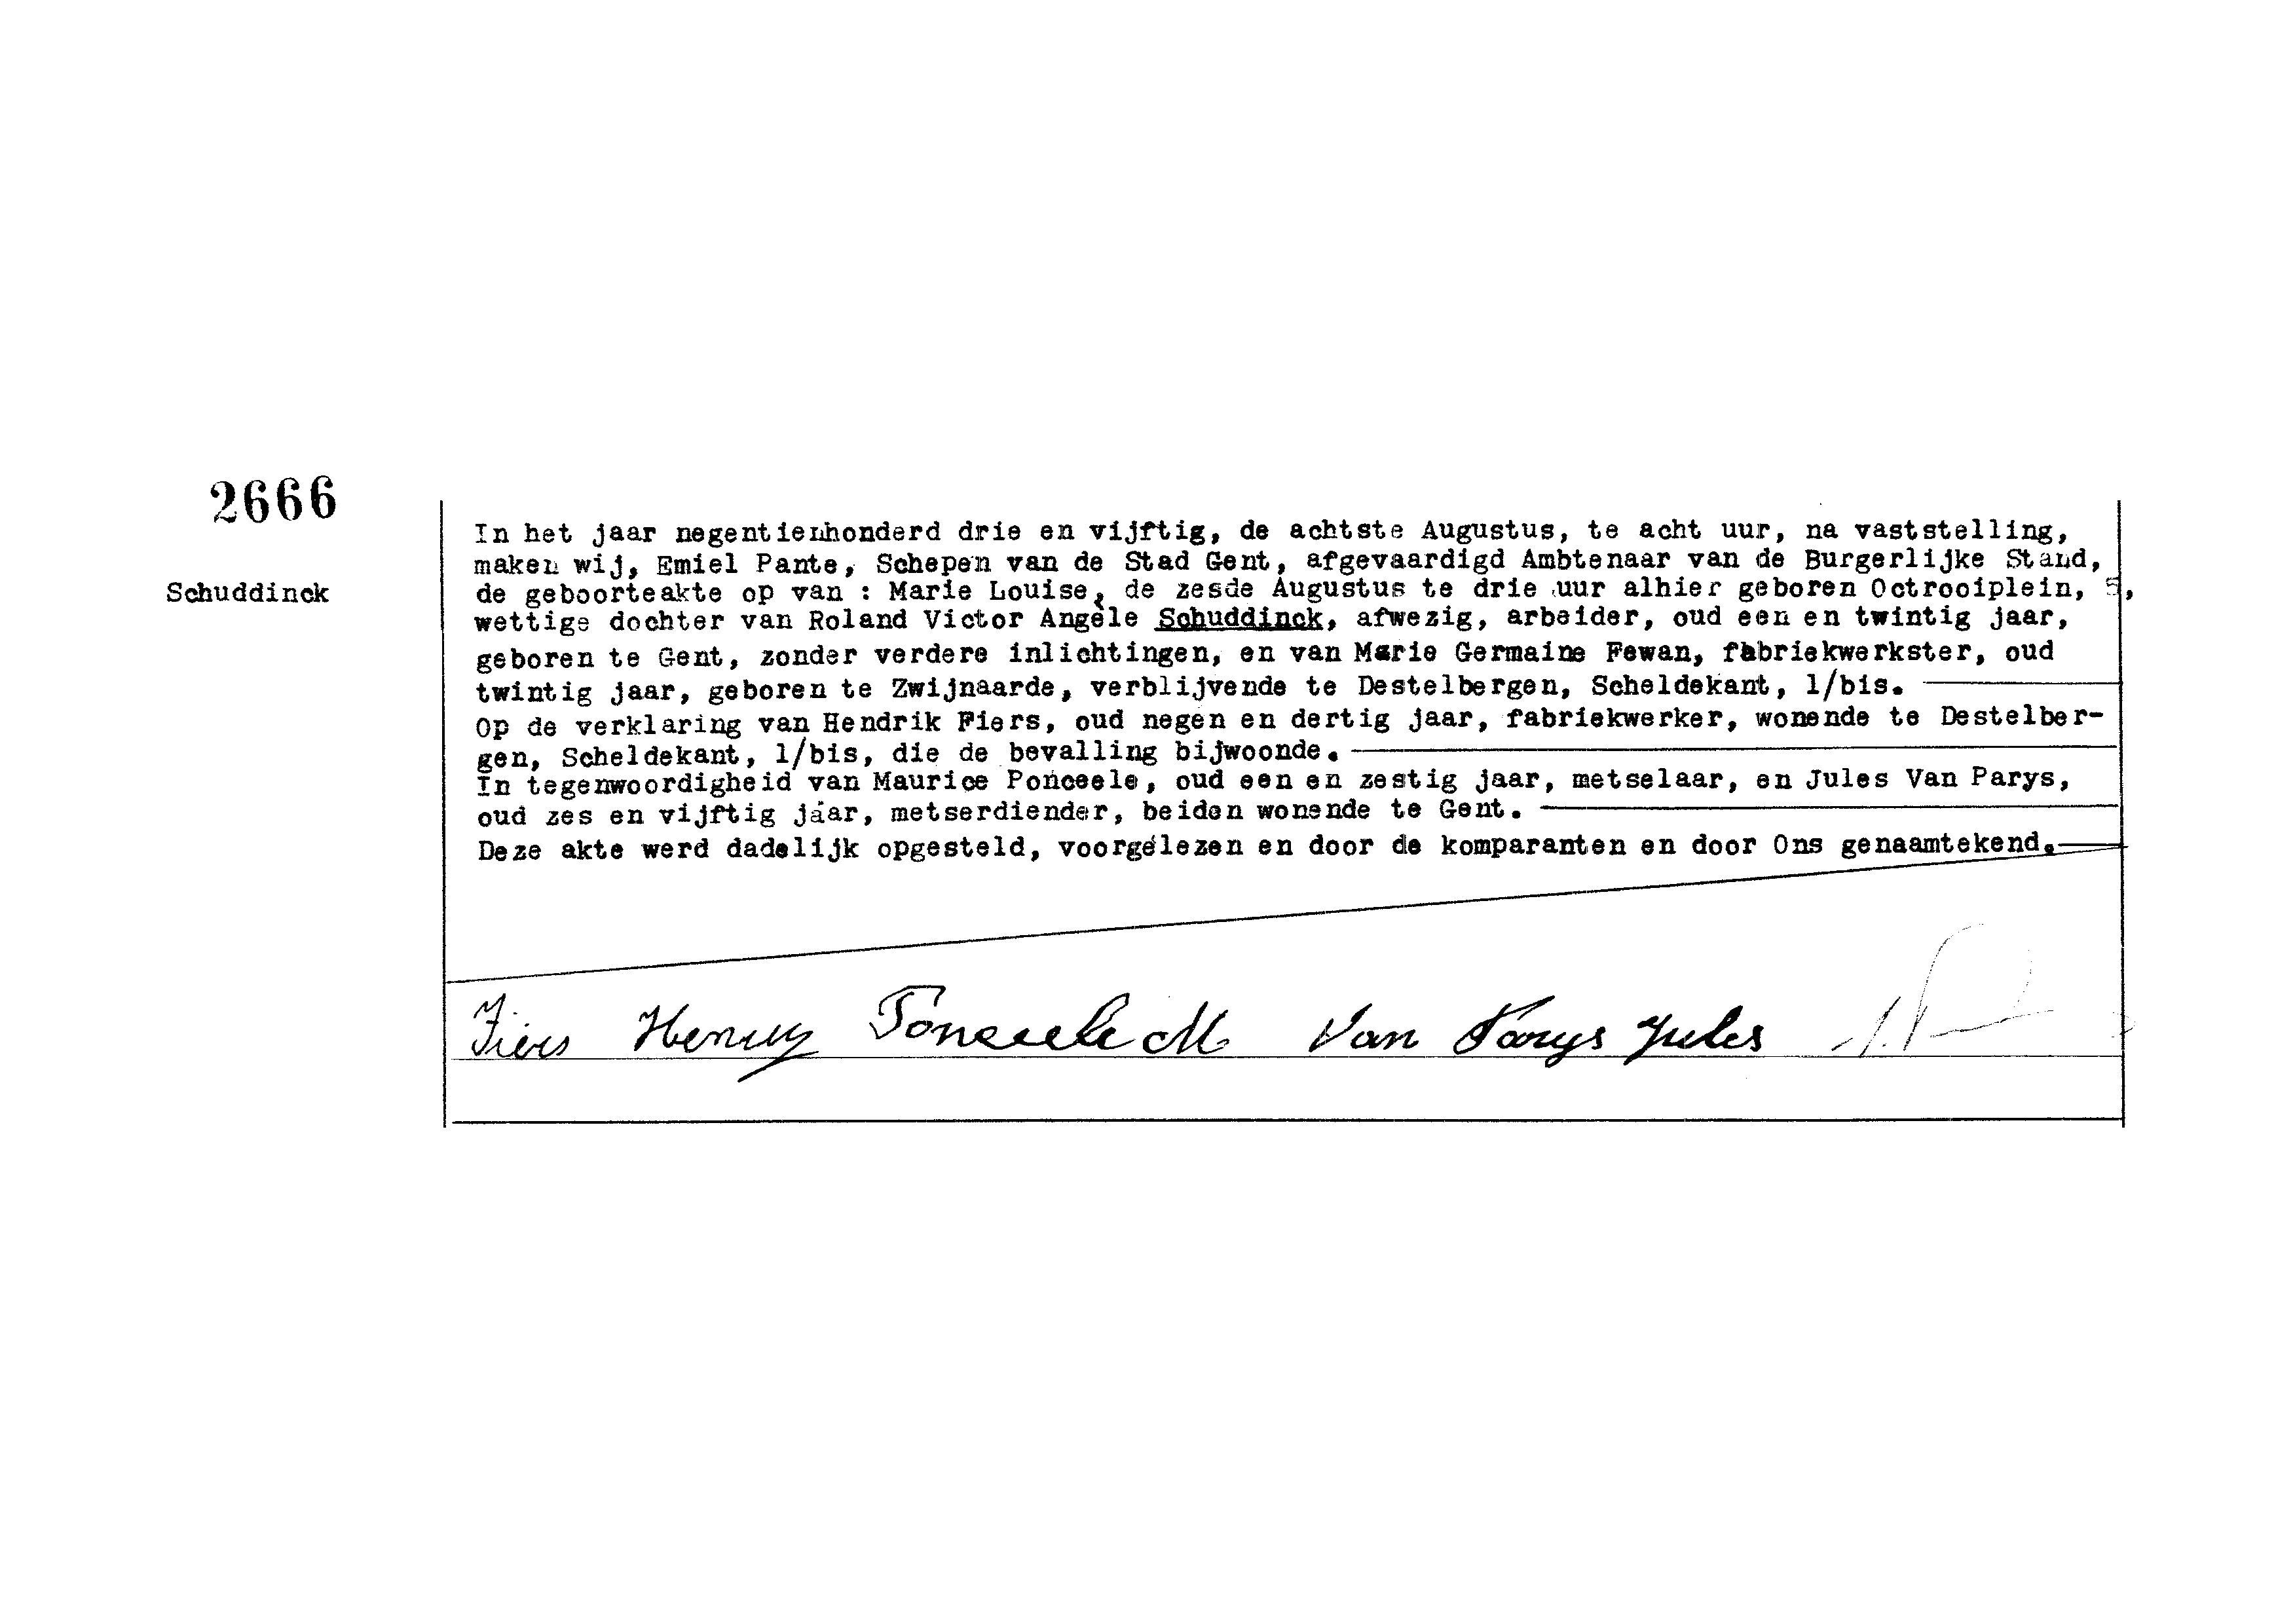 2666
Schuddinck
In het jaar negentienhonderd drie en vijftig, de achtste Augustus, te acht uur, na vaststelling,
maken wij, Emiel Pante, Schepen van de Stad Gent, afgevaardigd Ambtenaar van de Burgerlijke Stand,
de geboorteakte op van : Marie Louise, de zesde Augustus te drie uur alhier geboren Octrooiplein, 5,
wettige dochter van Roland Victor Angèle Schuddinck, afwezig, arbeider, oud een en twintig jaar,
geboren te Gent, zonder verdere inlichtingen, en van Marie Germaine Fewan, fabriekwerkster, oud
twintig jaar, geboren te Zwijnaarde, verblijvende te Destelbergen, Scheldekant, 1/bis.
Op de verklaring van Hendrik Fiers, oud negen en dertig jaar, fabriekwerker, wonende te Destelber-
gen, Scheldekant, 1/bis, die de bevalling bijwoonde.
In tegenwoordigheid van Maurice Ponceele, oud een en zestig jaar, metselaar, en Jules Van Parys,
oud zes en vijftig jaar, metserdiender, beiden wonende te Gent.
Deze akte werd dadelijk opgesteld, voorgelezen en door de komparanten en door Ons genaamtekend.
Fiers Henry Ponceele M Van Parys Jules